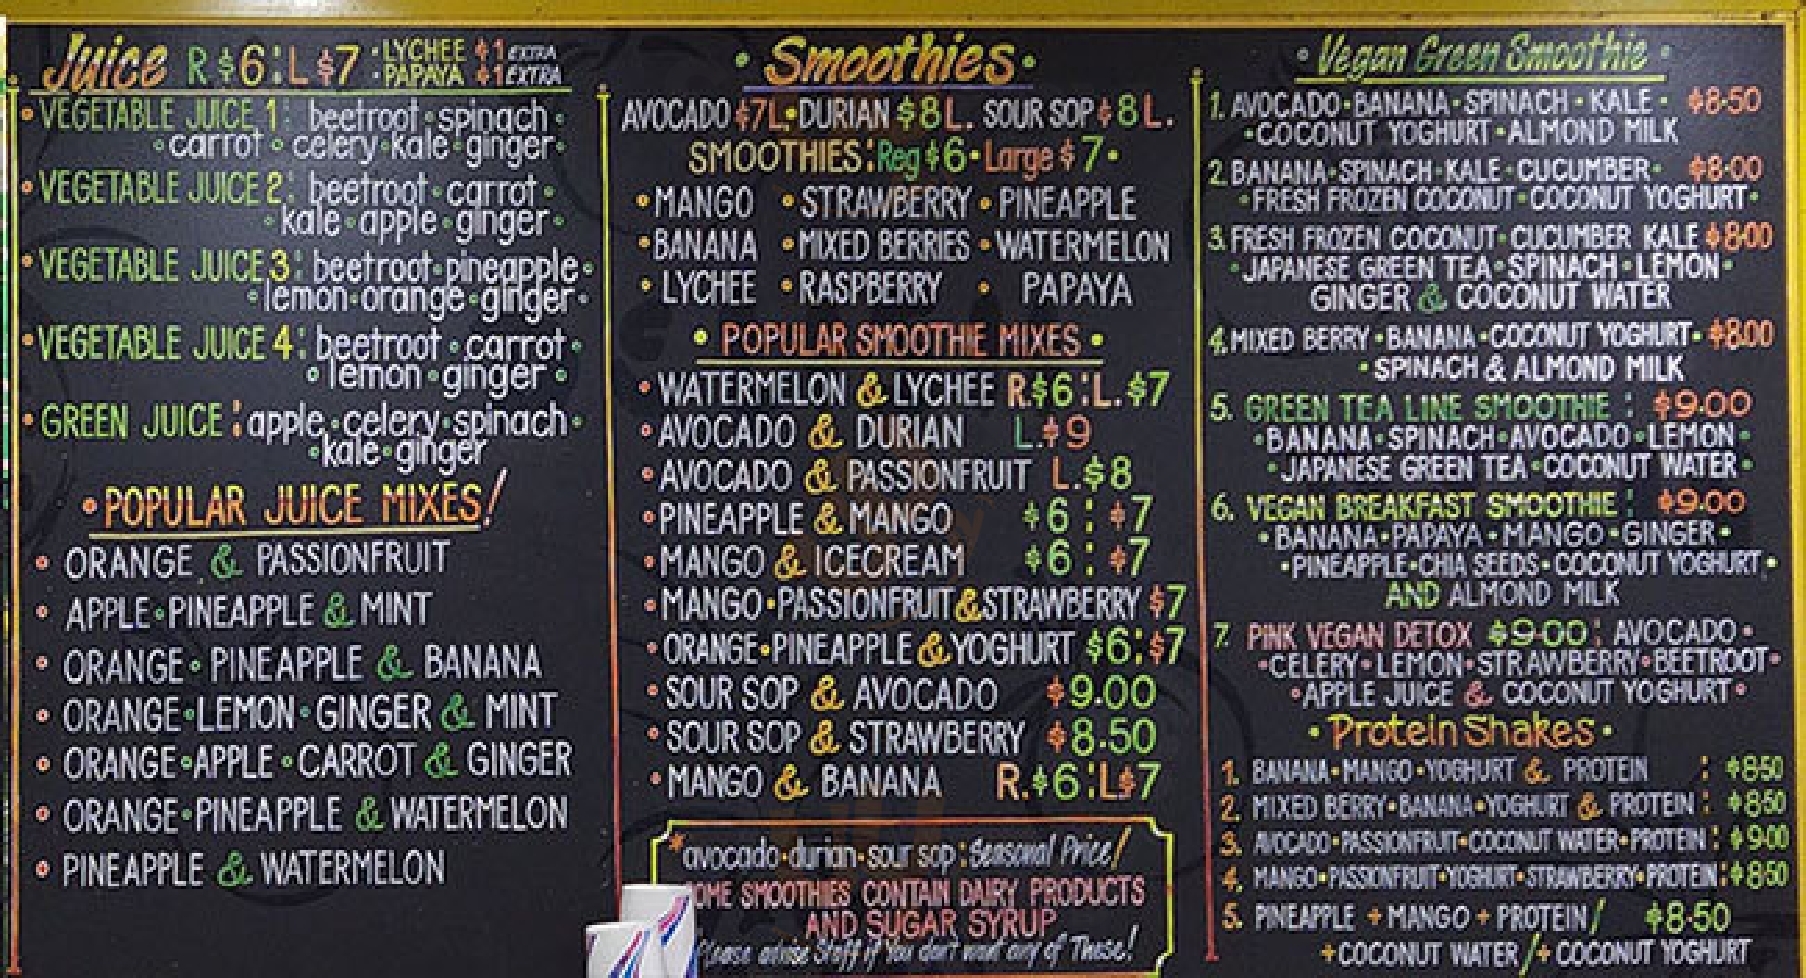 Juice R $6 : L $7 • LYCHEE $1 EXTRA
• PAPAYA $1 EXTRA
• VEGETABLE JUICE 1: beetroot • spinach •
• carrot • celery • kale • ginger •
• VEGETABLE JUICE 2: beetroot • carrot •
• kale • apple • ginger •
• VEGETABLE JUICE 3: beetroot • pineapple •
• lemon • orange • ginger •
• VEGETABLE JUICE 4: beetroot • carrot •
• lemon • ginger •
• GREEN JUICE : apple • celery • spinach •
• kale • ginger
• POPULAR JUICE MIXES!
• ORANGE & PASSIONFRUIT
• APPLE • PINEAPPLE & MINT
• ORANGE • PINEAPPLE & BANANA
• ORANGE • LEMON • GINGER & MINT
• ORANGE • APPLE • CARROT & GINGER
• ORANGE • PINEAPPLE & WATERMELON
• PINEAPPLE & WATERMELON
• Smoothies •
AVOCADO $7L • DURIAN $8L. SOUR SOP $8L.
SMOOTHIES : Reg $6 • Large $7 •
• MANGO • STRAWBERRY • PINEAPPLE
• BANANA • MIXED BERRIES • WATERMELON
• LYCHEE • RASPBERRY • PAPAYA
• POPULAR SMOOTHIE MIXES •
• WATERMELON & LYCHEE R.$6 : L.$7
• AVOCADO & DURIAN L.$9
• AVOCADO & PASSIONFRUIT L.$8
• PINEAPPLE & MANGO $6 : $7
• MANGO & ICECREAM $6 : $7
• MANGO • PASSIONFRUIT & STRAWBERRY $7
• ORANGE • PINEAPPLE & YOGHURT $6 : $7
• SOUR SOP & AVOCADO $9.00
• SOUR SOP & STRAWBERRY $8.50
• MANGO & BANANA R.$6 : L$7
*avocado • durian • sour sop : Seasonal Price!
OME SMOOTHIES CONTAIN DAIRY PRODUCTS
AND SUGAR SYRUP
Please advise Staff if You don't want any of These!
• Vegan Green Smoothie •
1. AVOCADO • BANANA • SPINACH • KALE • $8.50
• COCONUT YOGHURT • ALMOND MILK
2. BANANA • SPINACH • KALE • CUCUMBER • $8.00
• FRESH FROZEN COCONUT • COCONUT YOGHURT •
3. FRESH FROZEN COCONUT • CUCUMBER KALE $8.00
• JAPANESE GREEN TEA • SPINACH • LEMON •
GINGER & COCONUT WATER
4. MIXED BERRY • BANANA • COCONUT YOGHURT • $8.00
• SPINACH & ALMOND MILK
5. GREEN TEA LINE SMOOTHIE : $9.00
• BANANA • SPINACH • AVOCADO • LEMON •
• JAPANESE GREEN TEA • COCONUT WATER •
6. VEGAN BREAKFAST SMOOTHIE : $9.00
• BANANA • PAPAYA • MANGO • GINGER •
• PINEAPPLE • CHIA SEEDS • COCONUT YOGHURT •
AND ALMOND MILK
7. PINK VEGAN DETOX $9.00 : AVOCADO •
• CELERY • LEMON • STRAWBERRY • BEETROOT •
• APPLE JUICE & COCONUT YOGHURT •
• Protein Shakes •
1. BANANA • MANGO • YOGHURT & PROTEIN : $8.50
2. MIXED BERRY • BANANA • YOGHURT & PROTEIN : $8.50
3. AVOCADO • PASSIONFRUIT • COCONUT WATER • PROTEIN : $9.00
4. MANGO • PASSIONFRUIT • YOGHURT • STRAWBERRY • PROTEIN : $8.50
5. PINEAPPLE + MANGO + PROTEIN / $8.50
+ COCONUT WATER / + COCONUT YOGHURT